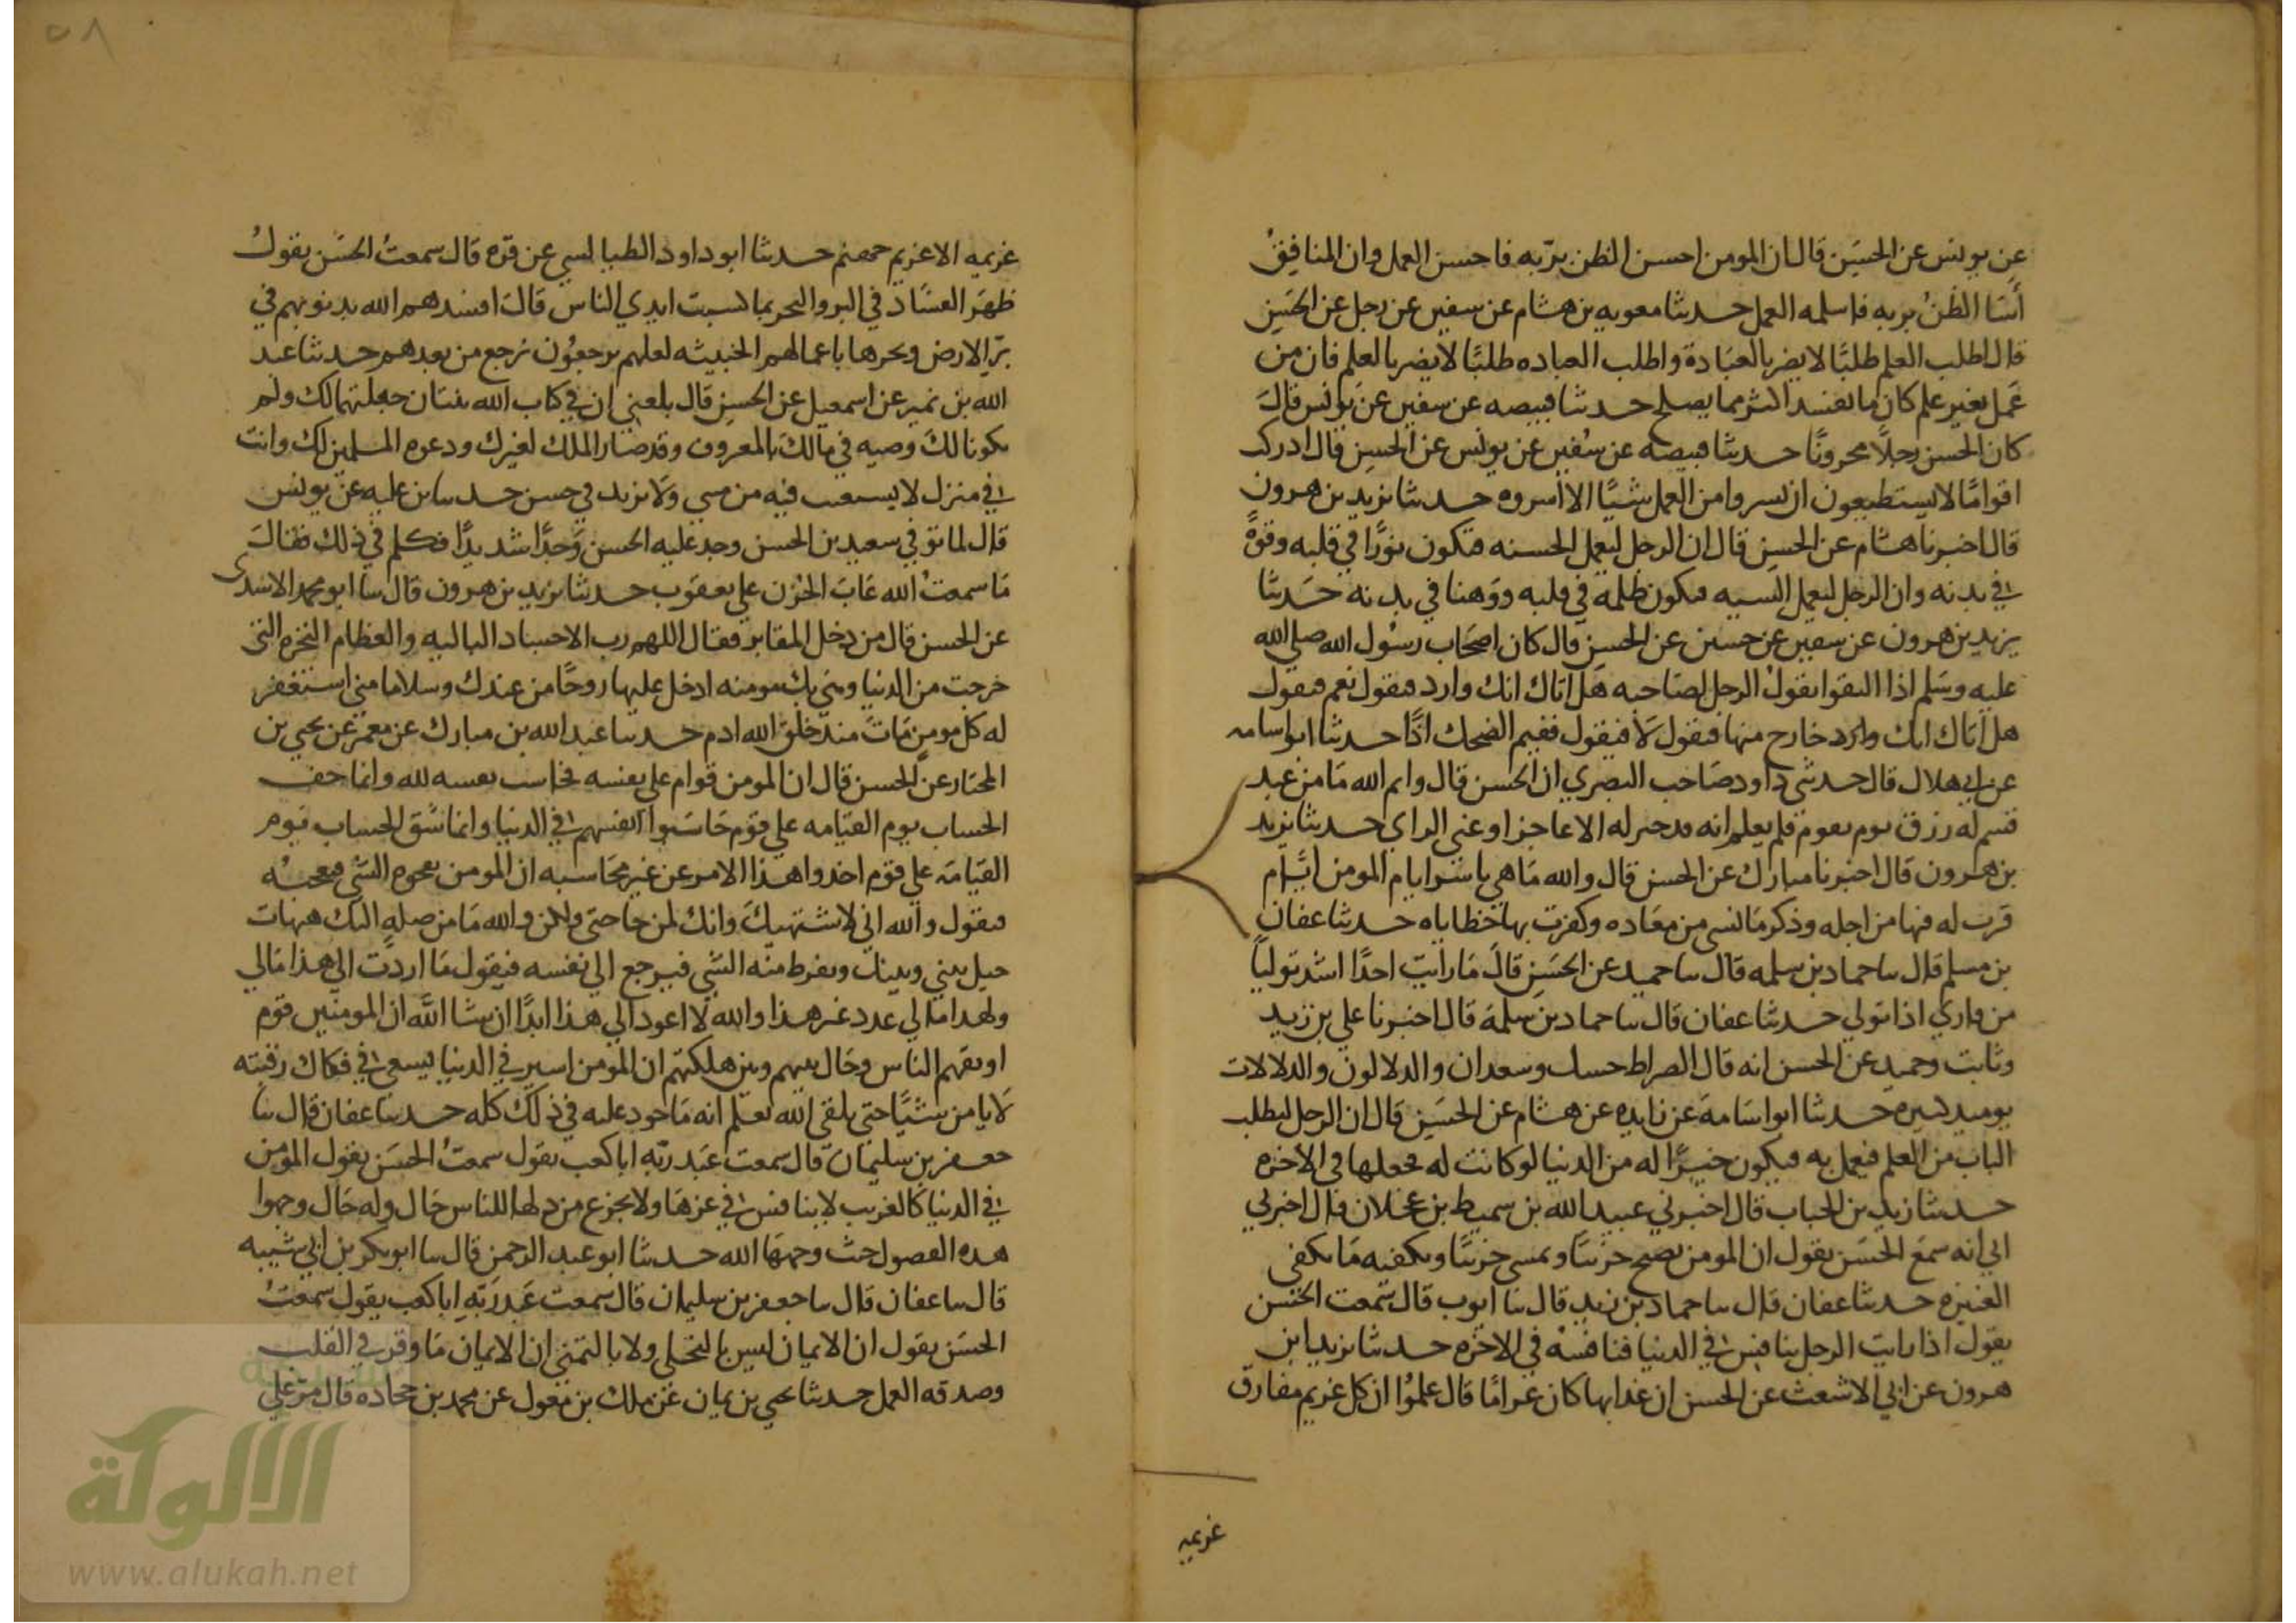 عن يونس عن الحسن قال ان المومن احسن الظن بربه فاحسن العمل وان المنافق
أسا الظن بربه فاسا العمل حدثنا معويه بن هشام عن سفين عن رجل عن الحسن
قال اطلب العلم طلبًا لا يضر بالعبادة واطلب العباده طلبًا لا يضر بالعلم فان من
عمل بغير علم كان ما يفسد اكثر مما يصلح حدثنا قبيصه عن سفين عن يونس قال
كان الحسن رجلًا محزونًا حدثنا قبيصه عن سفين عن يونس عن الحسن قال ادركت
اقوامًا لا يستطيعون ان يسروا من العمل شيًا الا اسروه حدثنا يزيد بن هرون
قال اخبرنا هشام عن الحسن قال ان الرجل ليعمل الحسنه فتكون نورًا في قلبه وقوة
في بدنه وان الرجل ليعمل السييه فتكون ظلمه في قلبه ووهنا في بدنه حدثنا
يزيد بن هرون عن سفين عن حسين عن الحسن قال كان اصحاب رسول الله صلى الله
عليه وسلم اذا التقوا يقول الرجل لصاحبه هل اتاك انك وارد فيقول نعم فيقول
هل اتاك انك وارد خارج منها فيقول لا فيقول ففيم الضحك اذًا حدثنا ابو اسامه
عن ابي هلال قال حدثني داود صاحب البصري ان الحسن قال وايم الله ما من عبد
قسم له رزق يوم بيوم فلم يعلم انه قد خير له الا عاجز او غبي الراي حدثنا يزيد
بن هرون قال اخبرنا مبارك عن الحسن قال والله ما هي باشر ايام المومن ايام
قرب له فيها من اجله وذكر ما نسي من معاده وكفرت بها خطاياه حدثنا عفان
بن مسلم قال سا حماد بن سلمه قال سا حميد عن الحسن قال ما رايت احدًا اشد توليًا
من قاري اذا تولي حدثنا عفان قال سا حماد بن سلمة قال اخبرنا علي بن زيد
وثابت وحميد عن الحسن انه قال الصراط حسك وسعدان والزلالون والزلالات
يوميذ كثيره حدثنا ابو اسامة عن زايده عن هشام عن الحسن قال ان الرجل ليطلب
الباب من العلم فيعمل به فيكون خيرًا له من الدنيا لو كانت له فجعلها في الاخره
حدثنا زيد بن الحباب قال اخبرني عبيد الله بن سميط بن عجلان قال اخبرني
ابي انه سمع الحسن يقول ان المومن يصبح حزينًا ويمسي حزينًا ويكفيه ما يكفي
العنيزه حدثنا عفان قال سا حماد بن زيد قال سا ايوب قال سمعت الحسن
يقول اذا رايت الرجل ينافس في الدنيا فنافسه في الاخره حدثنا يزيد ابن
هرون عن ابي الاشعث عن الحسن ان عذابها كان غرامًا قال علموا ان كل غريم مفارق
غريمه
٥٨
غريمه الا غريم جهنم حدثنا ابو داود الطيالسي عن قره قال سمعت الحسن يقول
ظهر الفساد في البر والبحر بما كسبت ايدي الناس قال افسدهم الله بذنوبهم في
بر الارض وبحرها باعمالهم الخبيثه لعلهم يرجعون يرجع من بعدهم حدثنا عبد
الله بن نمير عن اسمعيل عن الحسن قال بلغني ان في كتاب الله ثنتان جعلتهما لك ولم
يكونا لك وصيه في مالك بالمعروف وقد صار الملك لغيرك ودعوه المسلمين لك وانت
في منزل لا يستعتب فيه من سيي ولا يزيد في حسن حدسا بن عليه عن يونس
قال لما توفي سعيد بن الحسن وجد عليه الحسن وجدًا شديدًا فكلم في ذلك فقال
ما سمعت الله عاب الحزن علي يعقوب حدثنا يزيد بن هرون قال سا ابو محمد الاسدي
عن الحسن قال من دخل المقابر فقال اللهم رب الاجساد الباليه والعظام النخره التي
خرجت من الدنيا وهي بك مومنه ادخل عليها روحًا من عندك وسلاما مني استغفر
له كل مومن مات منذ خلق الله ادم حدسا عبد الله بن مبارك عن معمر عن يحيي بن
المختار عن الحسن قال ان المومن قوام علي نفسه يحاسب نفسه لله وانما خف
الحساب يوم القيامه علي قوم حاسبوا انفسهم في الدنيا وانما شق الحساب يوم
القيامة علي قوم اخذوا هذا الامر عن غير محاسبه ان المومن يفجوه الشي فيعجبه
فيقول والله اني لاشتهيك وانك لمن حاجتي ولكن والله ما من صله اليك هيهات
حيل بيني وبينك ويفرط منه الشي فيرجع الي نفسه فيقول ما اردت الي هذا مالي
ولهذا مالي عذر غير هذا والله لا اعود الي هذا ابدًا ان شا الله ان المومنين قوم
اوثقهم الناس وحال بينهم وبين هلكتهم ان المومن اسير في الدنيا يسعي في فكاك رقبته
لا يامن شيًا حتي يلقي الله يعلم انه ماخوذ عليه في ذلك كله حدسا عفان قال سا
جعفر بن سليمان قال سمعت عبد ربه ابا كعب يقول سمعت الحسن يقول المومن
في الدنيا كالغريب لا ينافس في عزها ولا يجزع من ذلها للناس حال وله حال وجهوا
هذه الفصول حيث وجهها الله حدثنا ابو عبد الرحمن قال سا ابو بكر بن ابي شيبه
قال سا عفان قال سا جعفر بن سليمان قال سمعت عبد ربه ابا كعب يقول سمعت
الحسن يقول ان الايمان ليس بالتحلي ولا بالتمني ان الايمان ما وقر في القلب
وصدقه العمل حدثنا يحيي بن يمان عن ملك بن مغول عن محمد بن جحاده قال مر علي
شبكة
الألوكة
www.alukah.net